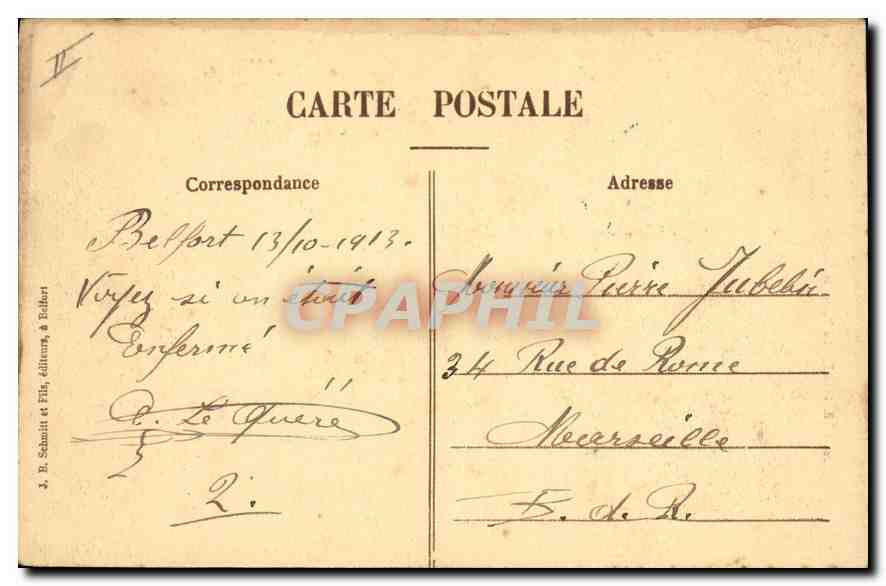 II
CARTE POSTALE
Correspondance
Belfort 13/10-1913.
Voyez si on était
Enfermé
Le Quéré
2.
Adresse
Monsieur Pierre
34 Rue de Rome
Marseille
B. d. R.
J. B. Schmitt et Fils, éditeurs, à Belfort
CPAPHIL